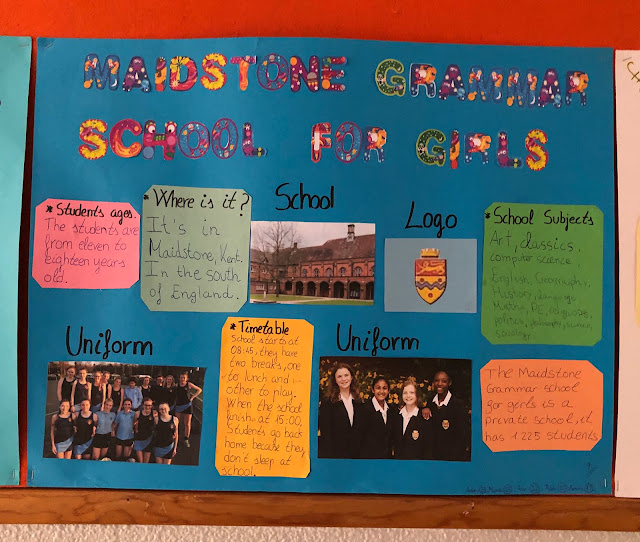 MAIDSTONE GRAMMAR
SCHOOL FOR GIRLS
* Students ages.
The students are
from eleven to
eighteen years
old.
* Where is it?
It's in
Maidstone, Kent.
In the south
of England.
School
Logo
* School Subjects
Art, classics,
computer science
English, Geography,
History, languages
Music, PE, religious,
politics,
Uniform
* Timetable
School starts at
08:45, they have
two breaks, one
to lunch and
other to play.
When the school
finish at 15:00,
Students go back
home because they
don't sleep at
school.
Uniform
The Maidstone
Grammar school
for girls is a
private school, it
has 1225 students